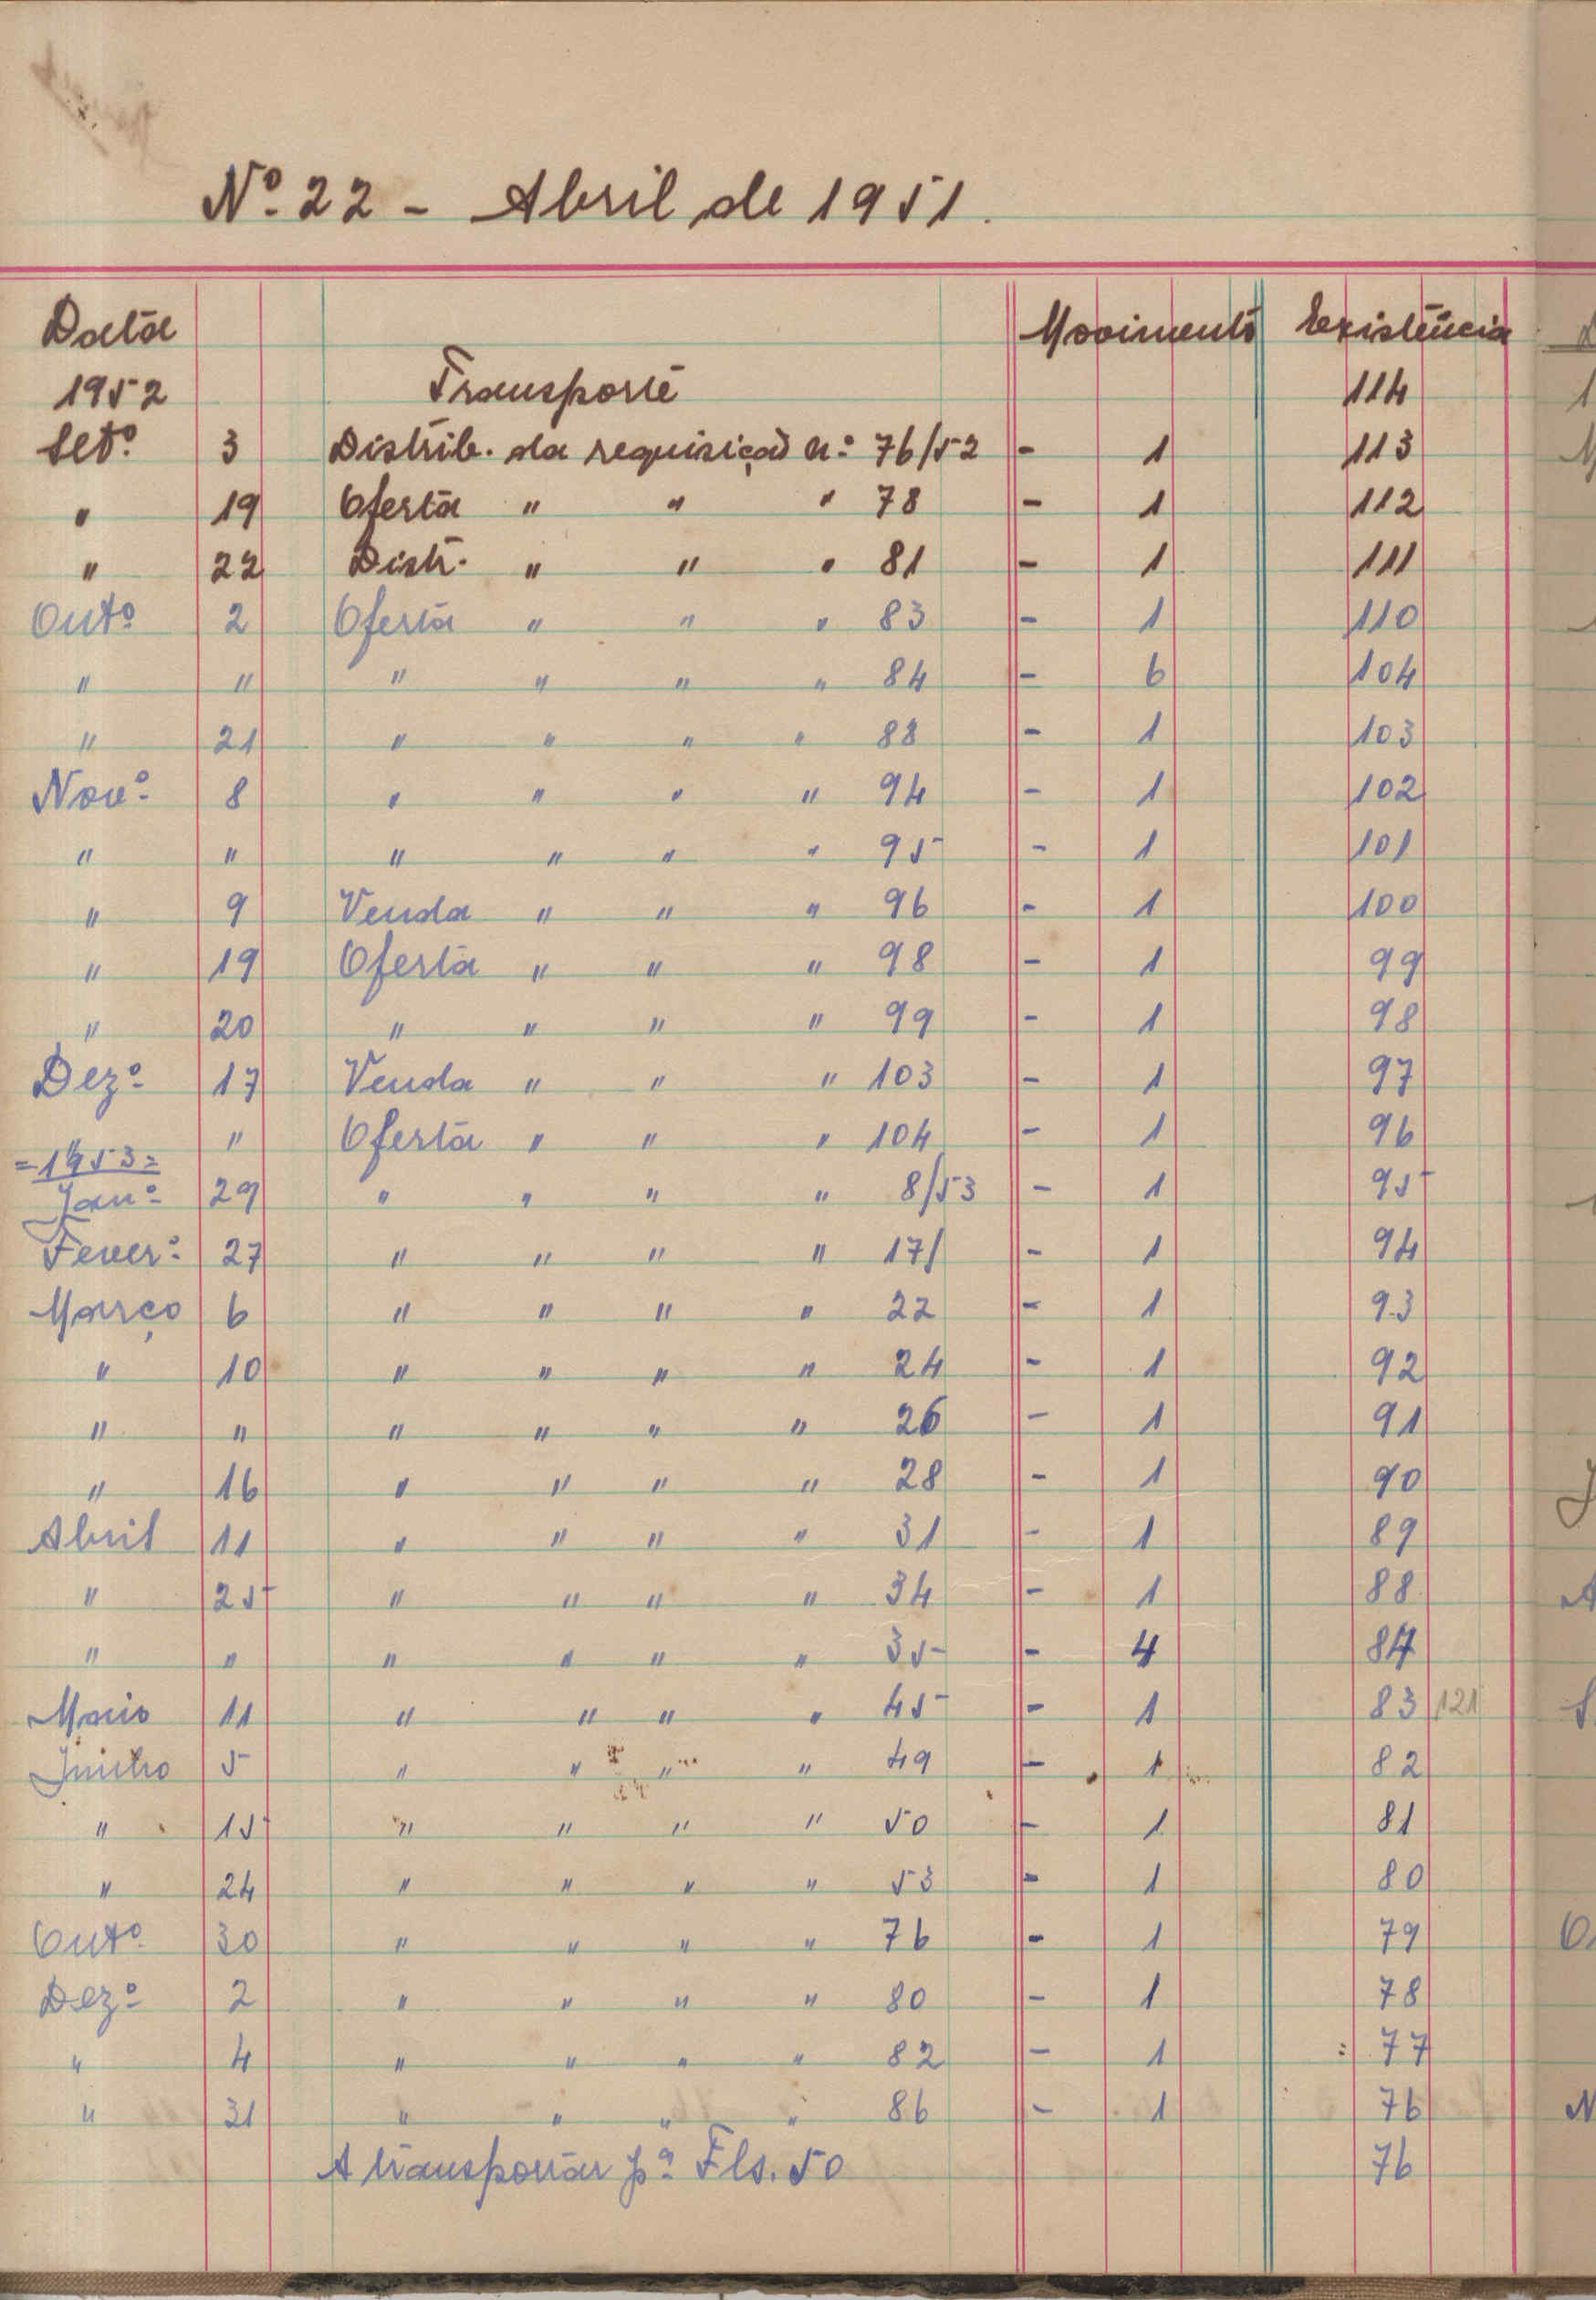 Nº 22 - Abril de 1951.
Data Movimento Existência
1952 Transporte 114
Setº 3 Distrib. da requisição nº 76/52 - 1 113
" 19 Oferta " " " 78 - 1 112
" 22 Distr. " " " 81 - 1 111
Outº 2 Oferta " " " 83 - 1 110
" " " " " " 84 - 6 104
" 21 " " " " 88 - 1 103
Novº 8 " " " " 94 - 1 102
" " " " " " 95 - 1 101
" 9 Venda " " " 96 - 1 100
" 19 Oferta " " " 98 - 1 99
" 20 " " " " 99 - 1 98
Dezº 17 Venda " " " 103 - 1 97
" " Oferta " " " 104 - 1 96
=1953=
Janº 29 " " " " 8/53 - 1 95
Feverº 27 " " " " 17/ - 1 94
Março 6 " " " " 22 - 1 93
" 10 " " " " 24 - 1 92
" " " " " " 26 - 1 91
" 16 " " " " 28 - 1 90
Abril 11 " " " " 31 - 1 89
" 25 " " " " 34 - 1 88
" " " " " " 35 - 4 84
Maio 11 " " " " 45 - 1 83 121
Junho 5 " " " " 49 - 1 82
" 15 " " " " 50 - 1 81
" 24 " " " " 53 - 1 80
Outº 30 " " " " 76 - 1 79
Dezº 2 " " " " 80 - 1 78
" 4 " " " " 82 - 1 : 77
" 31 " " " " 86 - 1 76
A transportar pª Fls. 50 76